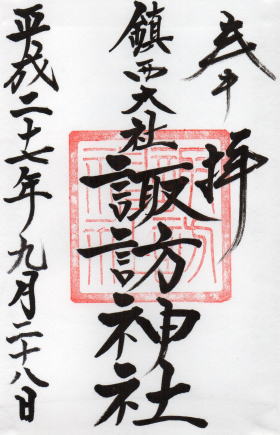 奉拝
鎮西大社
諏訪神社
平成二十七年九月二十八日